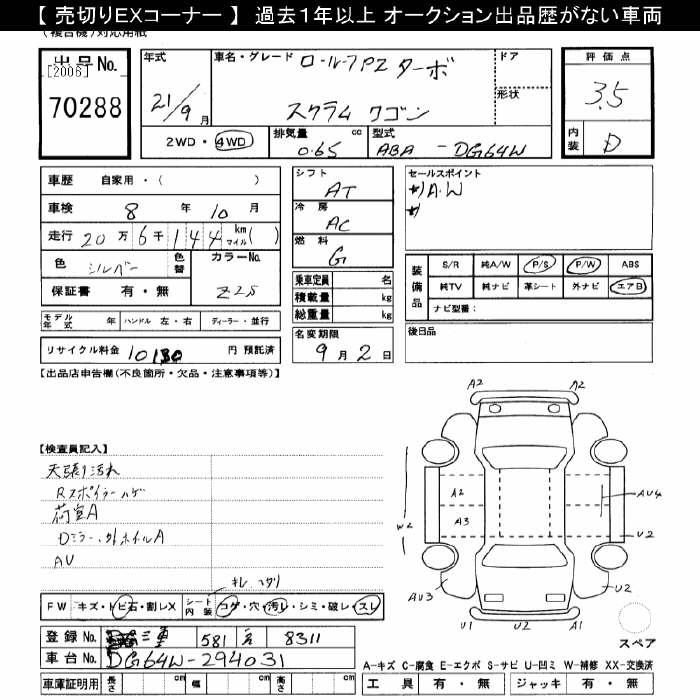 【 売切りEXコーナー 】 過去1年以上 オークション出品歴がない車両
(複合機)対応用紙
出品 No.
[2006]
70288
年式
21/9 月
車名・グレード
ロールーフPZ ターボ
スクラム ワゴン
ドア
形状
評価点
3.5
内装 D
2WD・4WD
排気量 cc
0.65
型式
ABA - DG64W
車歴 自家用・( )
車検 8 年 10 月
走行 20 万 6 千 1 4 4 km マイル( )
色 シルバー 色替 カラーNo.
保証書 有・無 Z2S
モデル年式 年 ハンドル 左・右 ディーラー・並行
リサイクル料金 10130 円 預託済
シフト
AT
冷房
AC
燃料
G
乗車定員 名
積載量 kg
総重量 kg
名変期限
9 月 2 日
セールスポイント
A.W
装備品
S/R 純A/W P/S P/W ABS
純TV 純ナビ 革シート 外ナビ エアB
ナビ型番:
後日品
【出品店申告欄(不良箇所・欠品・注意事項等)】
【検査員記入】
天張り汚れ
Rスポイラーハゲ
荷室A
Dミラー、外ホイルA
AV
キレ
FW キズ・トビ石・割レX
シート内装 コゲ・穴・汚レ・シミ・破レ・スレ
登録 No. 三重 581 8311
車台 No. DG64W-294031
車庫証明用 長さ cm 幅 cm 高さ cm
A2 A2
A2
A3
W2
AU4
U2
AU3
U2
U1 U2 A1
スペア
A-キズ C-腐食 E-エクボ S-サビ U-凹ミ W-補修 XX-交換済
工具 有・無 ジャッキ 有・無